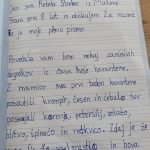 Jaz sem Rebeka Stadler iz Zlatene
Stara sem 8 let in obiskujem 2a razred
je moje prvo pismo.
Povedala vam bom nekaj zanimivih
dogodkov iz časa moje karantene.
Z mamico sva prvi teden karantene
posadili krompir, česen in čebulo ter
posejali korenje, peteršilj, solato,
blitvo, špinačo in redkvico. Zdaj je že
in bova